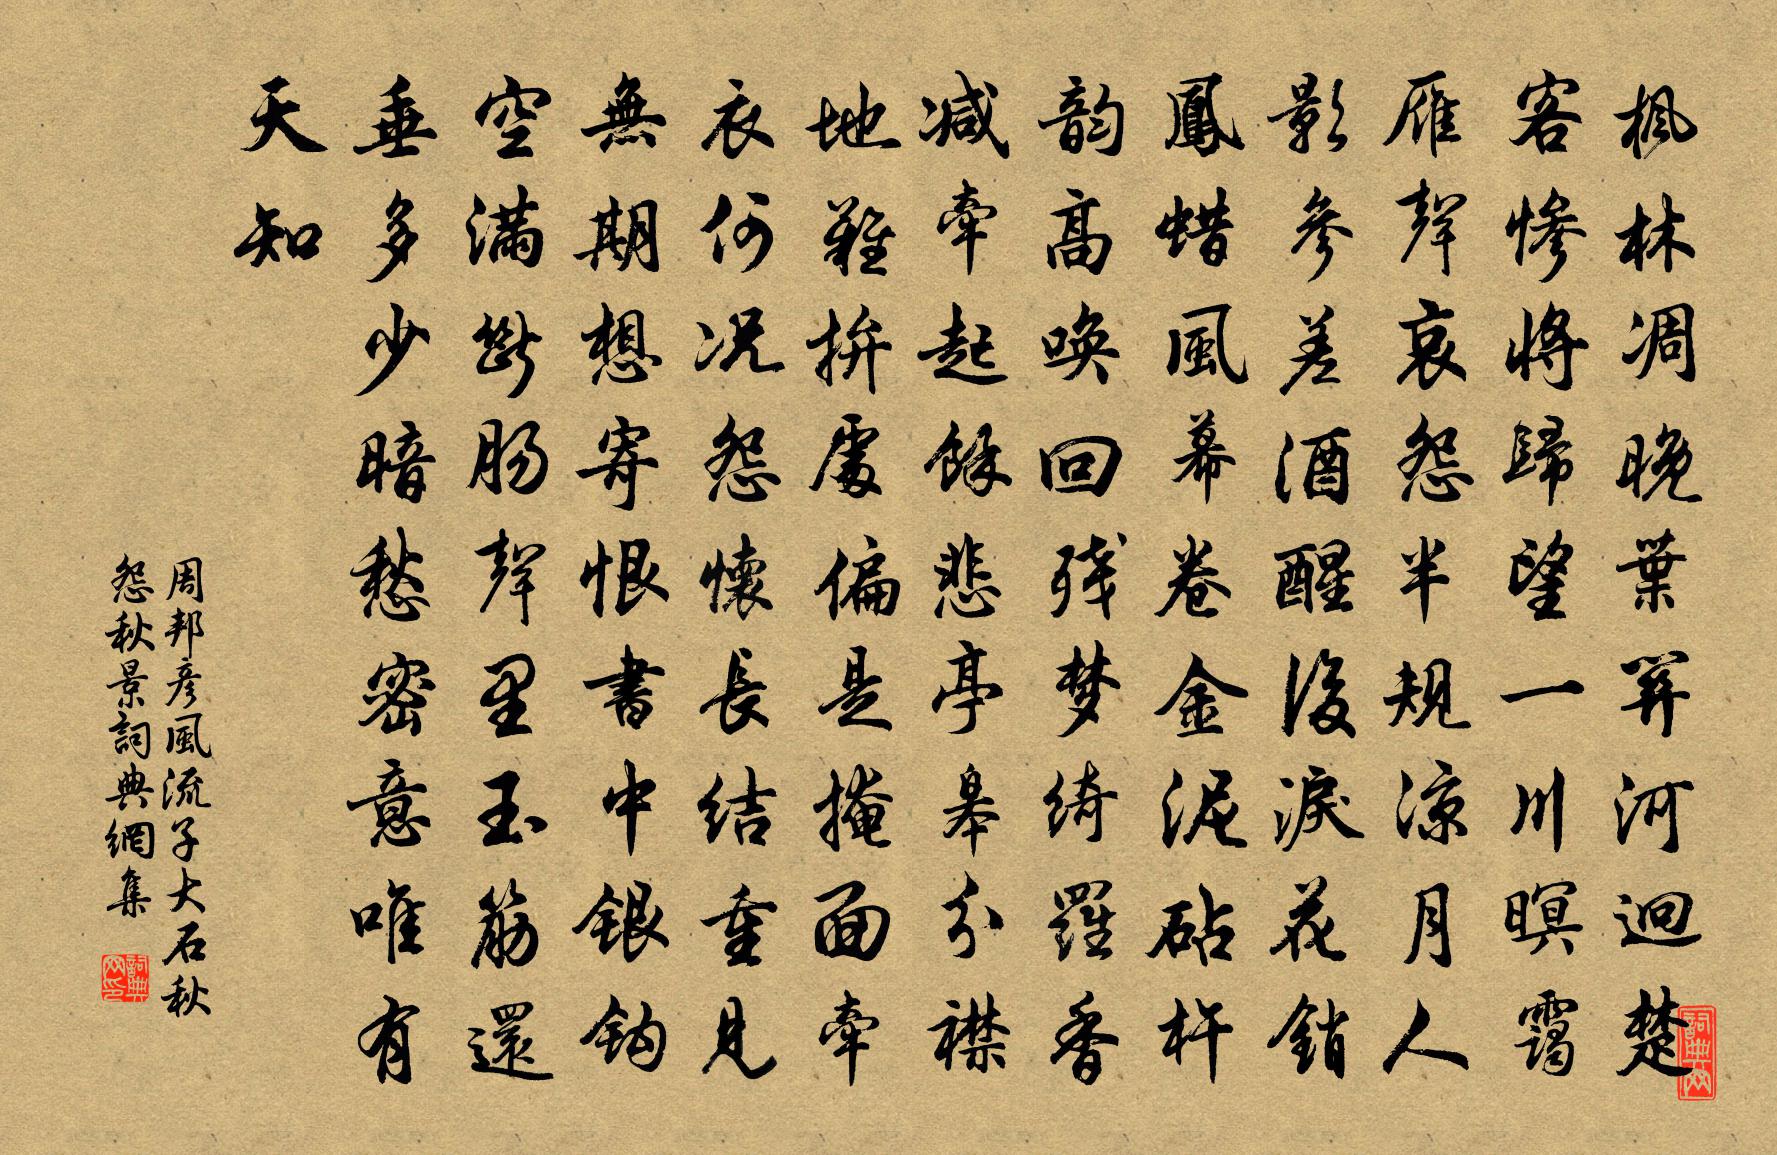 楓林凋晚葉關河迥楚
客慘將歸望一川暝靄
雁聲哀怨半規涼月人
影參差酒醒後淚花銷
鳳蜡風幕卷金泥砧杵
韵高喚回残梦綺羅香
减牽起餘悲亭皋分襟
地難拚處偏是掩面牽
衣何况怨懷長結重見
無期想寄恨書中銀鈎
空滿斷肠聲里玉筯還
垂多少暗愁密意唯有
天知
周邦彦風流子大石秋
怨秋景詞典網集
詞典网
詞典网印